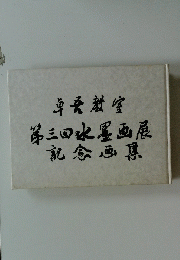 卓吾教室
第三回水墨画展
記念画集